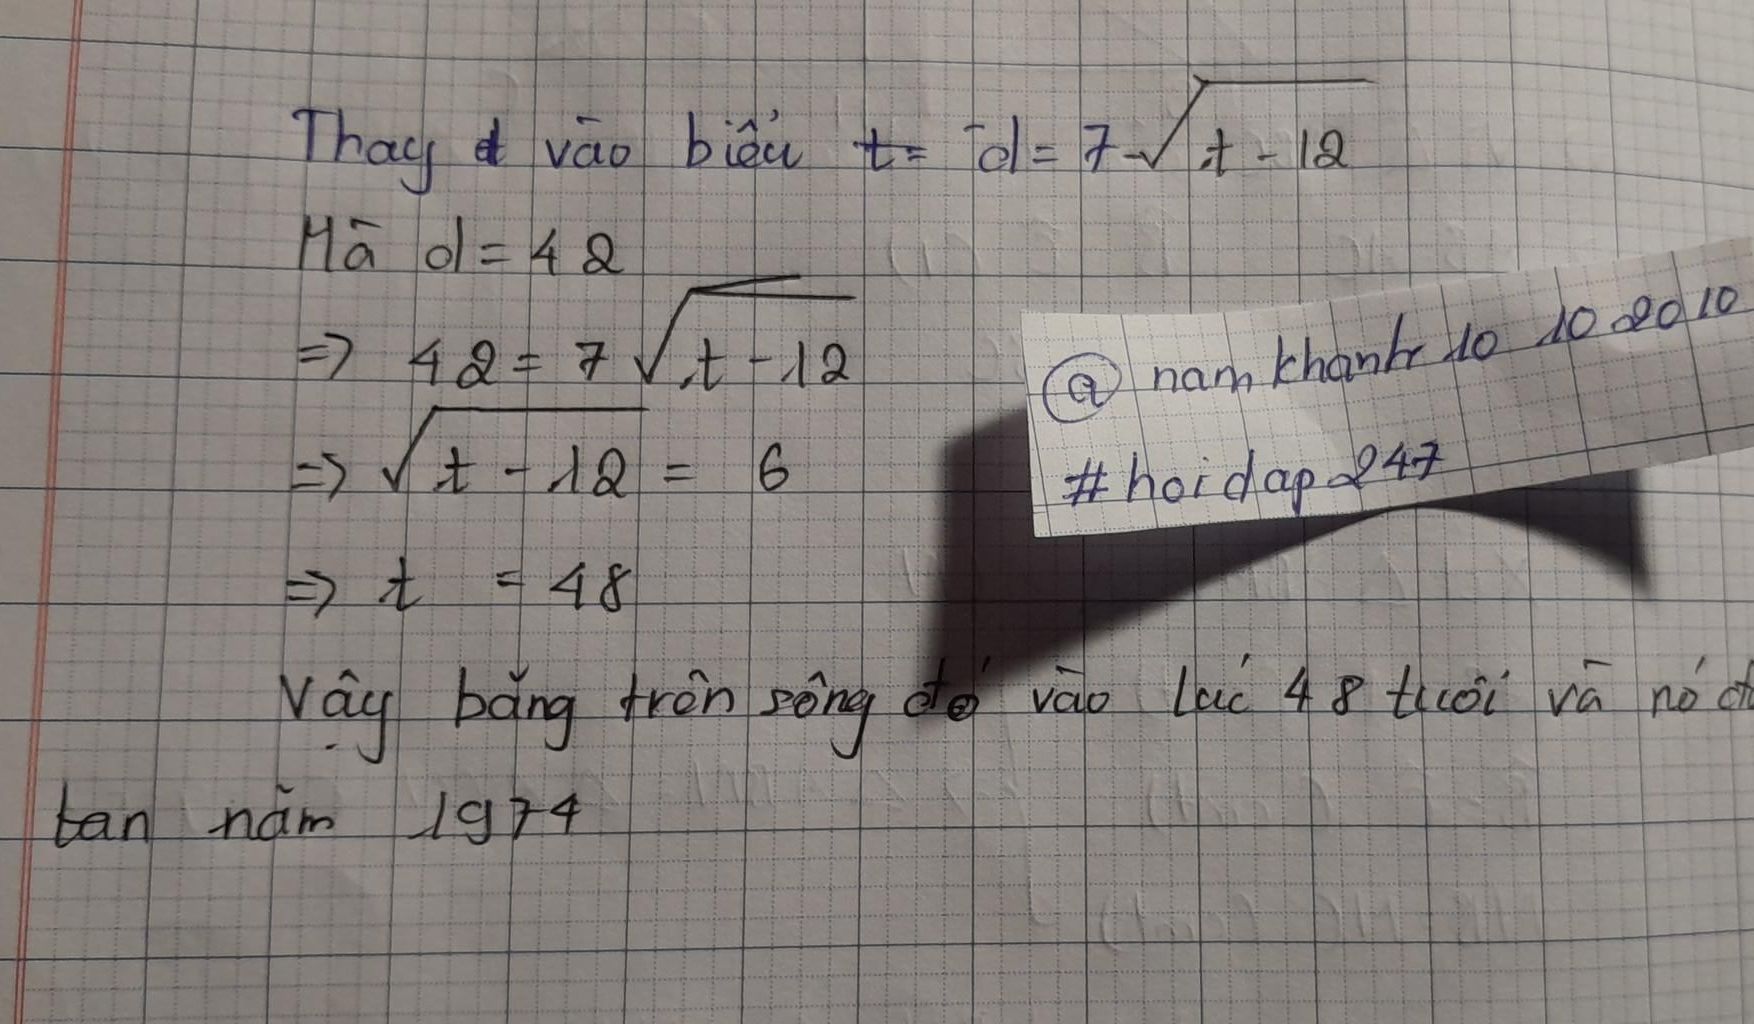 Thay d vào biểu t = d = 7√t - 12
Mà d = 42
=> 42 = 7√t - 12
=> √t - 12 = 6
=> t = 48
Vậy băng trên sông đó vào lúc 48 tuổi và nó đ
tan năm 1974
@ nam khanh 10 10 2010
# hoi dap 247